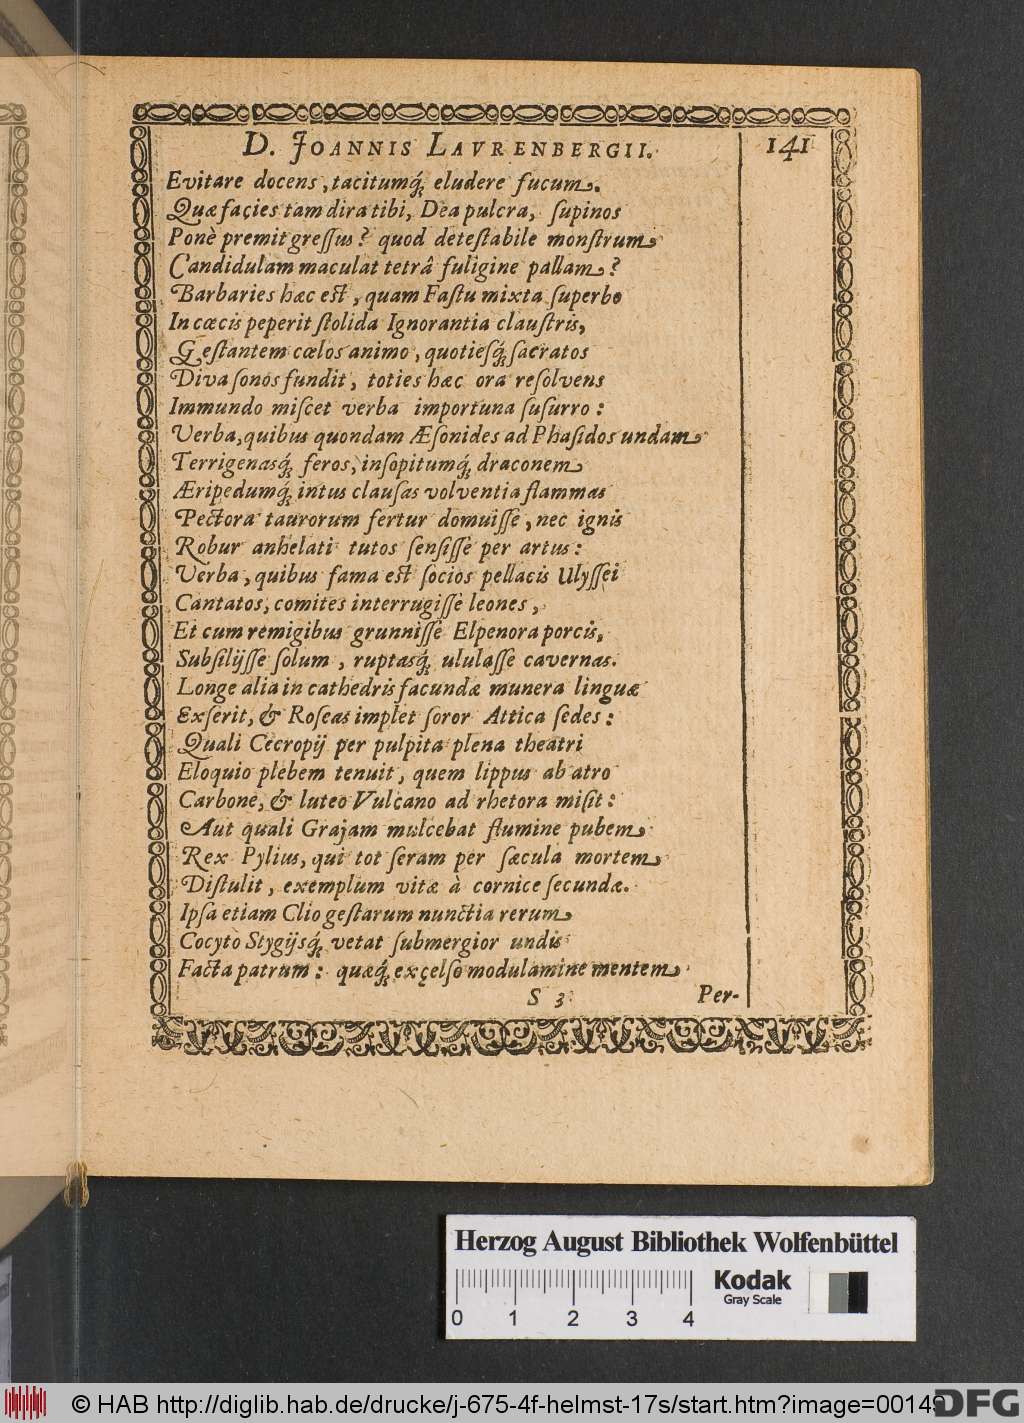 D. JOANNIS LAVRENBERGII. 141
Evitare docens, tacitumq́; eludere fucum.
Quæ facies tam dira tibi, Dea pulcra, supinos
Ponè premit gressus? quod detestabile monstrum
Candidulam maculat tetrâ fuligine pallam?
Barbaries hæc est, quam Fastu mixta superbo
In cœcis peperit stolida Ignorantia claustris,
Gestantem cœlos animo, quotiesq́; sacratos
Diva sonos fundit, toties hæc ora resolvens
Immundo miscet verba importuna susurro:
Verba, quibus quondam Æsonides ad Phasidos undam
Terrigenasq́; feros, insopitumq́; draconem
Æripedumq́; intus clausas volventia flammas
Pectora taurorum fertur domuisse, nec ignis
Robur anhelati tutos sensisse per artus:
Verba, quibus fama est socios pellacis Ulyssei
Cantatos, comites interrugisse leones,
Et cum remigibus grunnisse Elpenora porcis,
Subsilijsse solum, ruptasq́; ululasse cavernas.
Longe alia in cathedris facundæ munera linguæ
Exserit, & Roseas implet soror Attica sedes:
Quali Cecropij per pulpita plena theatri
Eloquio plebem tenuit, quem lippus ab atro
Carbone, & luteo Vulcano ad rhetora misit:
Aut quali Grajam mulcebat flumine pubem
Rex Pylius, qui tot seram per sæcula mortem
Distulit, exemplum vitæ à cornice secundæ.
Ipsa etiam Clio gestarum nunctia rerum
Cocyto Stygijsq́; vetat submergior undis
Facta patrum: quæq́; excelso modulamine mentem
S 3 Per-
Herzog August Bibliothek Wolfenbüttel
0 1 2 3 4
Kodak
Gray Scale
© HAB http://diglib.hab.de/drucke/j-675-4f-helmst-17s/start.htm?image=00149
DFG